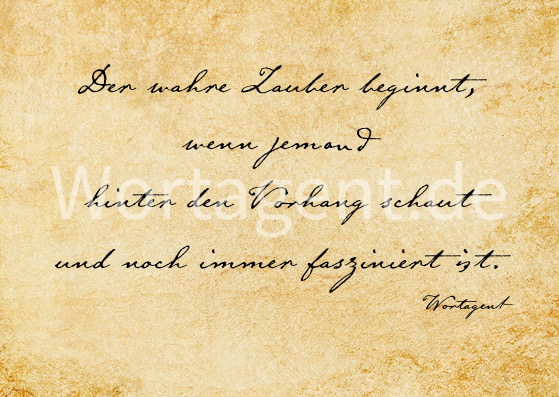 Der wahre Zauber beginnt,
wenn jemand
hinter den Vorhang schaut
Wortagent.de
und noch immer fasziniert ist.
Wortagent